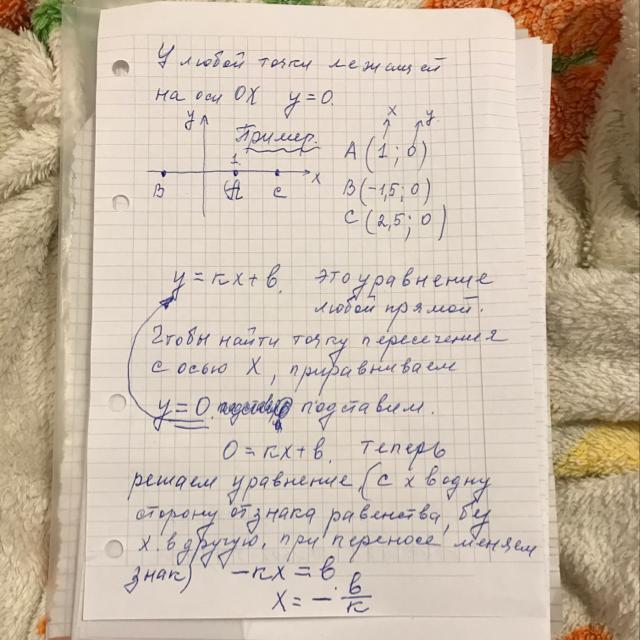 У любой точки лежащей
на оси OX y=0.
Пример.
x y
y
1
A (1; 0)
x
B A C
B(-1,5; 0)
C(2,5; 0)
y = кx+в. это уравнение
любой прямой.
Чтобы найти точку пересечения
с осью X, приравниваем
y=0. подставим.
0 = кx+в. Теперь
решаем уравнение (с x в одну
сторону от знака равенства, без
x в другую, при переносе меняем
знак) -кx = в
x = - в/к